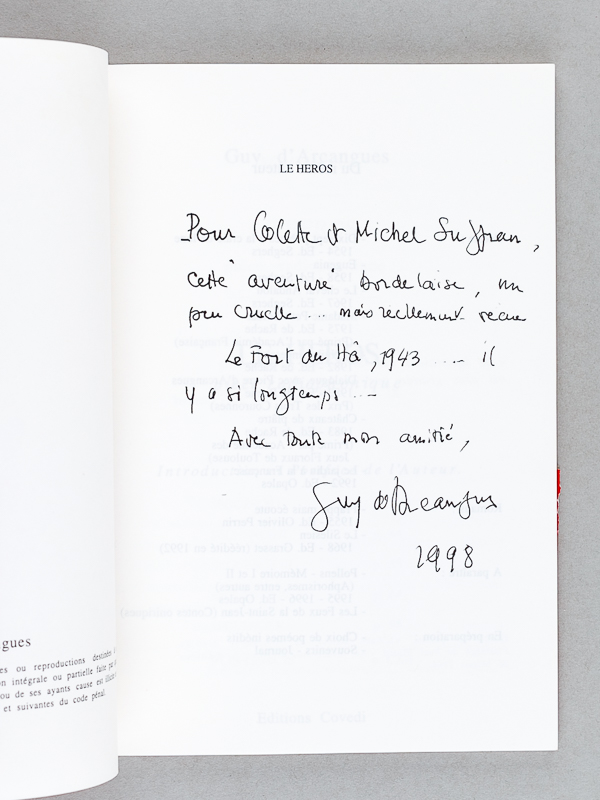 LE HEROS
Pour Colette et Michel Suffran,
cette "aventure" bordelaise, un
peu cruelle... mais réellement vécue
Le Fort du Hâ, 1943 .... il
y a si longtemps...
Avec toute mon amitié,
Guy d'Arcangues
1998
gues
es ou reproductions destinées
on intégrale ou partielle faite par
ou de ses ayants cause est illicite
et suivantes du code pénal.